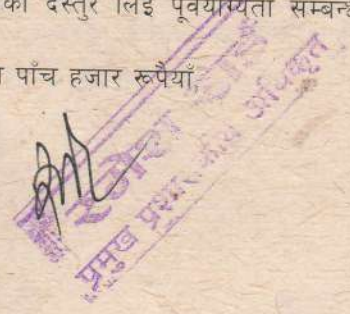 को दस्तुर लिई पूर्वयोग्यता सम्बन्ध
पाँच हजार रूपैयाँ
प्रमुख प्रशासकीय अधिकृत